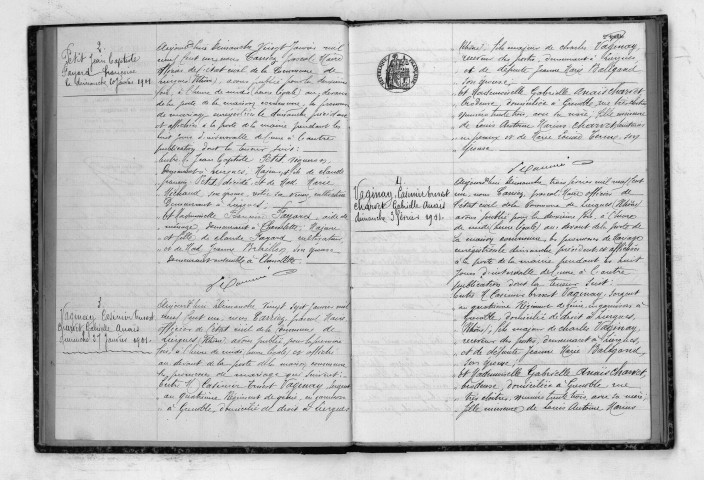 2.
Petit Jean Baptiste
Payard Françoise
Dimanche 20 Janvier 1901.
Aujourd'hui Dimanche Vingt Janvier mil
neuf cent un, nous Carrey Pascal Maire
officier de l'état civil de la Commune de
Liergues (Rhône), avons publié pour la deuxième
fois, à l'heure de midi (heure légale) au devant
de la porte de la maison commune, la promesse
de mariage enregistrée le dimanche précédent
et affichée à la porte de la mairie pendant les
huit jours d'intervalle de l'une à l'autre
publication dont la teneur suit:
Entre M. Jean Baptiste Petit, vigneron,
à Liergues, Majeur, fils de Claude
Petit, décédé, et de Marie
son épouse,
demeurant à Liergues.
Et Mademoiselle Payard, aide de
ménage, demeurant à Majeure
et fille de Claude Payard cultivateur,
et de Jeanne son épouse
demeurant ensemble à
Le Maire
3.
Vaginay Casimir Ernest
Charvet Gabrielle Anaïs
Dimanche 27 Janvier 1901.
Aujourd'hui dimanche Vingt Sept Janvier mil
neuf cent un, nous Carrey Pascal Maire
officier de l'état civil de la Commune de
Liergues (Rhône) avons publié pour la première
fois, à l'heure de midi (heure légale) et affiché
au devant de la porte de la maison commune
la promesse de mariage qui suit:
Entre M. Casimir Ernest Vaginay, Sergent
au quatrième Régiment de génie, en garnison
à Grenoble, domicilié de droit à Liergues
(Rhône), fils majeur de Charles Vaginay
receveur des postes, demeurant à Liergues,
et de défunte Jeanne Marie Balligand
son épouse;
Et Mademoiselle Gabrielle Anaïs Charvet
brodeuse, domiciliée à Grenoble, rue très-cloîtres
numéro trente trois, avec sa mère, fille mineure
de Louis Antoine Marius Charvet,
et de Marie Louise son
épouse.
Le Maire
4
Vaginay Casimir Ernest
Charvet Gabrielle Anaïs
Dimanche 3 février 1901.
Aujourd'hui Dimanche trois février mil neuf cent
un, nous Carrey Pascal Maire officier de
l'état civil de la Commune de Liergues (Rhône)
avons publié pour la deuxième fois, à l'heure
de midi (heure légale) au devant de la porte de
la maison commune, la promesse de mariage
enregistrée le dimanche précédent et affichée
à la porte de la mairie pendant les huit
jours d'intervalle de l'une à l'autre
publication dont la teneur suit:
Entre M. Casimir Ernest Vaginay, Sergent
au quatrième Régiment de génie, en garnison à
Grenoble, domicilié de droit à Liergues,
(Rhône), fils majeur de Charles Vaginay,
receveur des postes, demeurant à Liergues,
et de défunte Jeanne Marie Balligand
son épouse;
Et Mademoiselle Gabrielle Anaïs Charvet
brodeuse, domiciliée à Grenoble, rue
très cloîtres, numéro trente trois, avec sa mère,
fille mineure de Louis Antoine Marius